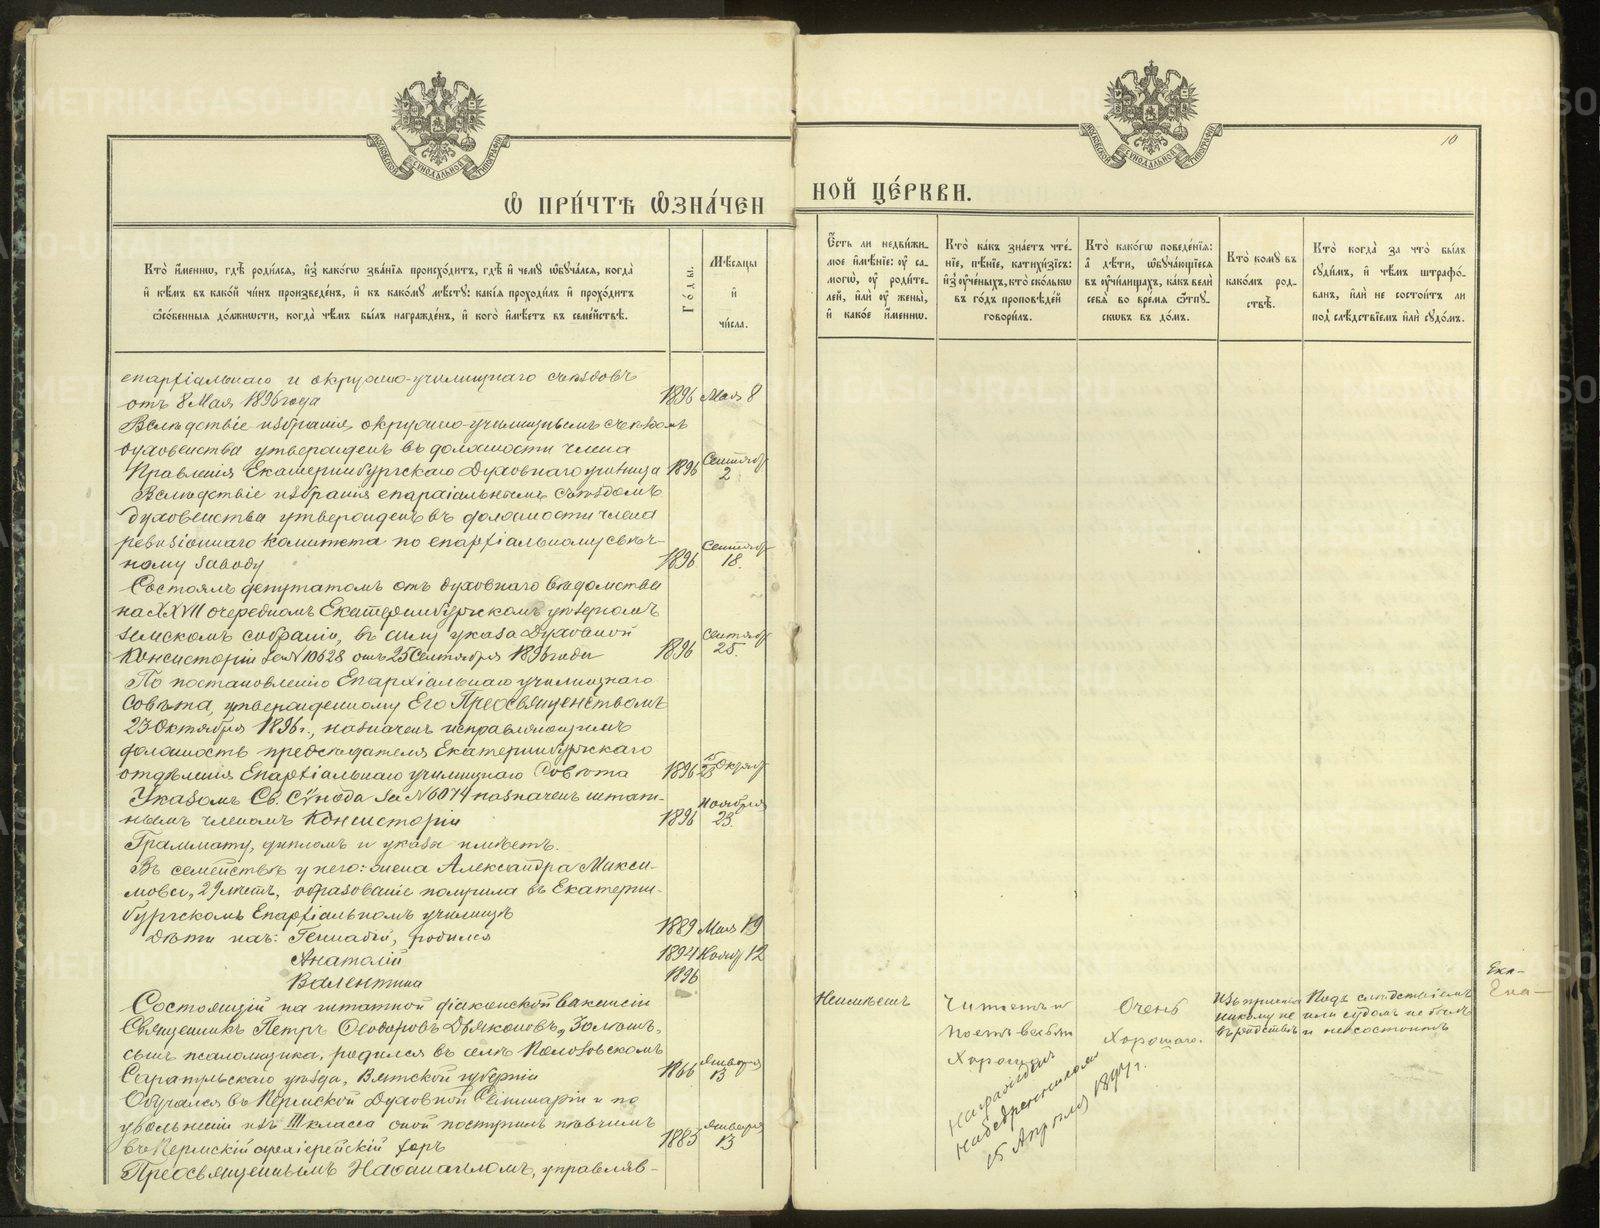 METRIKI.GASO-URAL.RU
МОСКОВСКОЙ СѴНОДАЛЬНОЙ ТИПОГРАФІИ
МОСКОВСКОЙ СѴНОДАЛЬНОЙ ТИПОГРАФІИ
10
Ѡ ПРИ́ЧТѢ ѠЗНА́ЧЕН
НОЙ ЦЕ́РКВИ.
Кто̀ и҆́менно, гдѣ̀ роди́лсѧ, и҆з̾ како́гѡ зва́нїѧ происхо́дитъ, гдѣ̀ и҆ чемꙋ̀ ѡ҆бꙋча́лсѧ, когда̀
и҆ кѣ́мъ въ како́й чи́нъ произведе́нъ, и҆ къ како́мꙋ мѣ́стꙋ: какі́ѧ проходи́лъ и҆ прохо́дитъ
ѻ҆со́бенныѧ до́лжности, когда̀ чѣ́мъ бы́лъ награжде́нъ, и҆ кого̀ и҆мѣ́етъ въ семе́йствѣ.
Го́ды.
Мѣ́сѧцы
и҆
чи́сла.
Є҆́сть ли недви́жи-
мое и҆мѣ́нїе: ᲂу҆ са-
могѡ̀, ᲂу҆ роди́те-
лей, и҆лѝ ᲂу҆ жены̀,
и҆ како́е и҆́менно.
Кто̀ ка́къ зна́етъ чте́-
нїе, пѣ́нїе, катихи́зїсъ:
и҆з̾ ᲂу҆че́ныхъ, кто̀ ско́лькѡ
въ го́дъ проповѣ́дей
говори́лъ.
Кто̀ како́гѡ поведе́нїѧ:
а҆ дѣ́ти, ѡ҆бꙋча́ющїесѧ
въ ᲂу҆чи́лищахъ, ка́къ велѝ
себѐ во вре́мѧ ѿпꙋ-
скѡвъ въ до́мъ.
Кто̀ комꙋ̀ въ
како́мъ род-
ствѣ̀.
Кто̀ когда̀ за что̀ бы́лъ
сꙋди́мъ, и҆ чѣ́мъ штрафо́-
ванъ, и҆лѝ не состои́тъ ли
под̾ слѣ́дствїемъ и҆лѝ сꙋдо́мъ.
епархіальнаго и окружно-училищнаго съѣздовъ
отъ 8 Мая 1896 года 1896 Мая 8
Вслѣдствіе избранія окружно-училищнымъ съѣздомъ
духовенства утвержденъ въ должности члена
Правленія Екатеринбургскаго Духовнаго училища 1896 Сентябр. 2
Вслѣдствіе избранія епархіальнымъ съѣздомъ
духовенства утвержденъ въ должности члена
ревизіоннаго комитета по епархіальному свѣч-
ному заводу 1896 Сентябр. 18.
Состоялъ депутатомъ отъ духовнаго вѣдомства
на XXVII очередномъ Екатеринбургскомъ уѣздномъ
земскомъ собраніи, въ силу указа Духовной
Консисторіи за № 10628 отъ 25 Сентября 1896 года 1896 Сентябр. 25.
По постановленію Епархіальнаго училищнаго
Совѣта, утвержденному Его Преосвященствомъ
23 Октября 1896 г., назначенъ исправляющимъ
должность предсѣдателя Екатеринбургскаго
отдѣленія Епархіальнаго училищнаго Совѣта 1896 15/23 Октябр.
Указомъ Св. Сѵнода за № 6074 назначенъ штат-
нымъ членомъ Консисторіи 1896 Ноября 23.
Граммату, дипломъ и указы имѣетъ.
Въ семействѣ у него: жена Александра Макси-
мова, 29 лѣтъ, образованіе получила въ Екатерин-
бургскомъ Епархіальномъ училищѣ
Дѣти ихъ: Геннадій, родился 1889 Мая 19
Анатолій 1894 Ноябр. 12
Валентина 1896
Состоящій на штатной діаконской вакансіи
Священникъ Петръ Ѳеодоровъ Дьяконовъ,
сынъ псаломщика, родился въ селѣ Козловскомъ
Сарапульскаго уѣзда, Вятской губерніи 1866 Января 13
Обучался въ Пермской Духовной Семинаріи и по
увольненіи изъ III класса оной поступилъ пѣвчимъ
въ Пермскій архіерейскій хоръ 1885 Января 13
Преосвященнымъ Наѳанаиломъ, управляв-
Неимѣетъ
Читаетъ и
поетъ весьма
хорошо.
Награжденъ
набедренникомъ
15 Апрѣля 1897 г.
Очень
хорошаго.
Изъ причта
никому не
въ родствѣ
Подъ слѣдствіемъ
или судомъ не былъ
и несостоитъ
Ека-